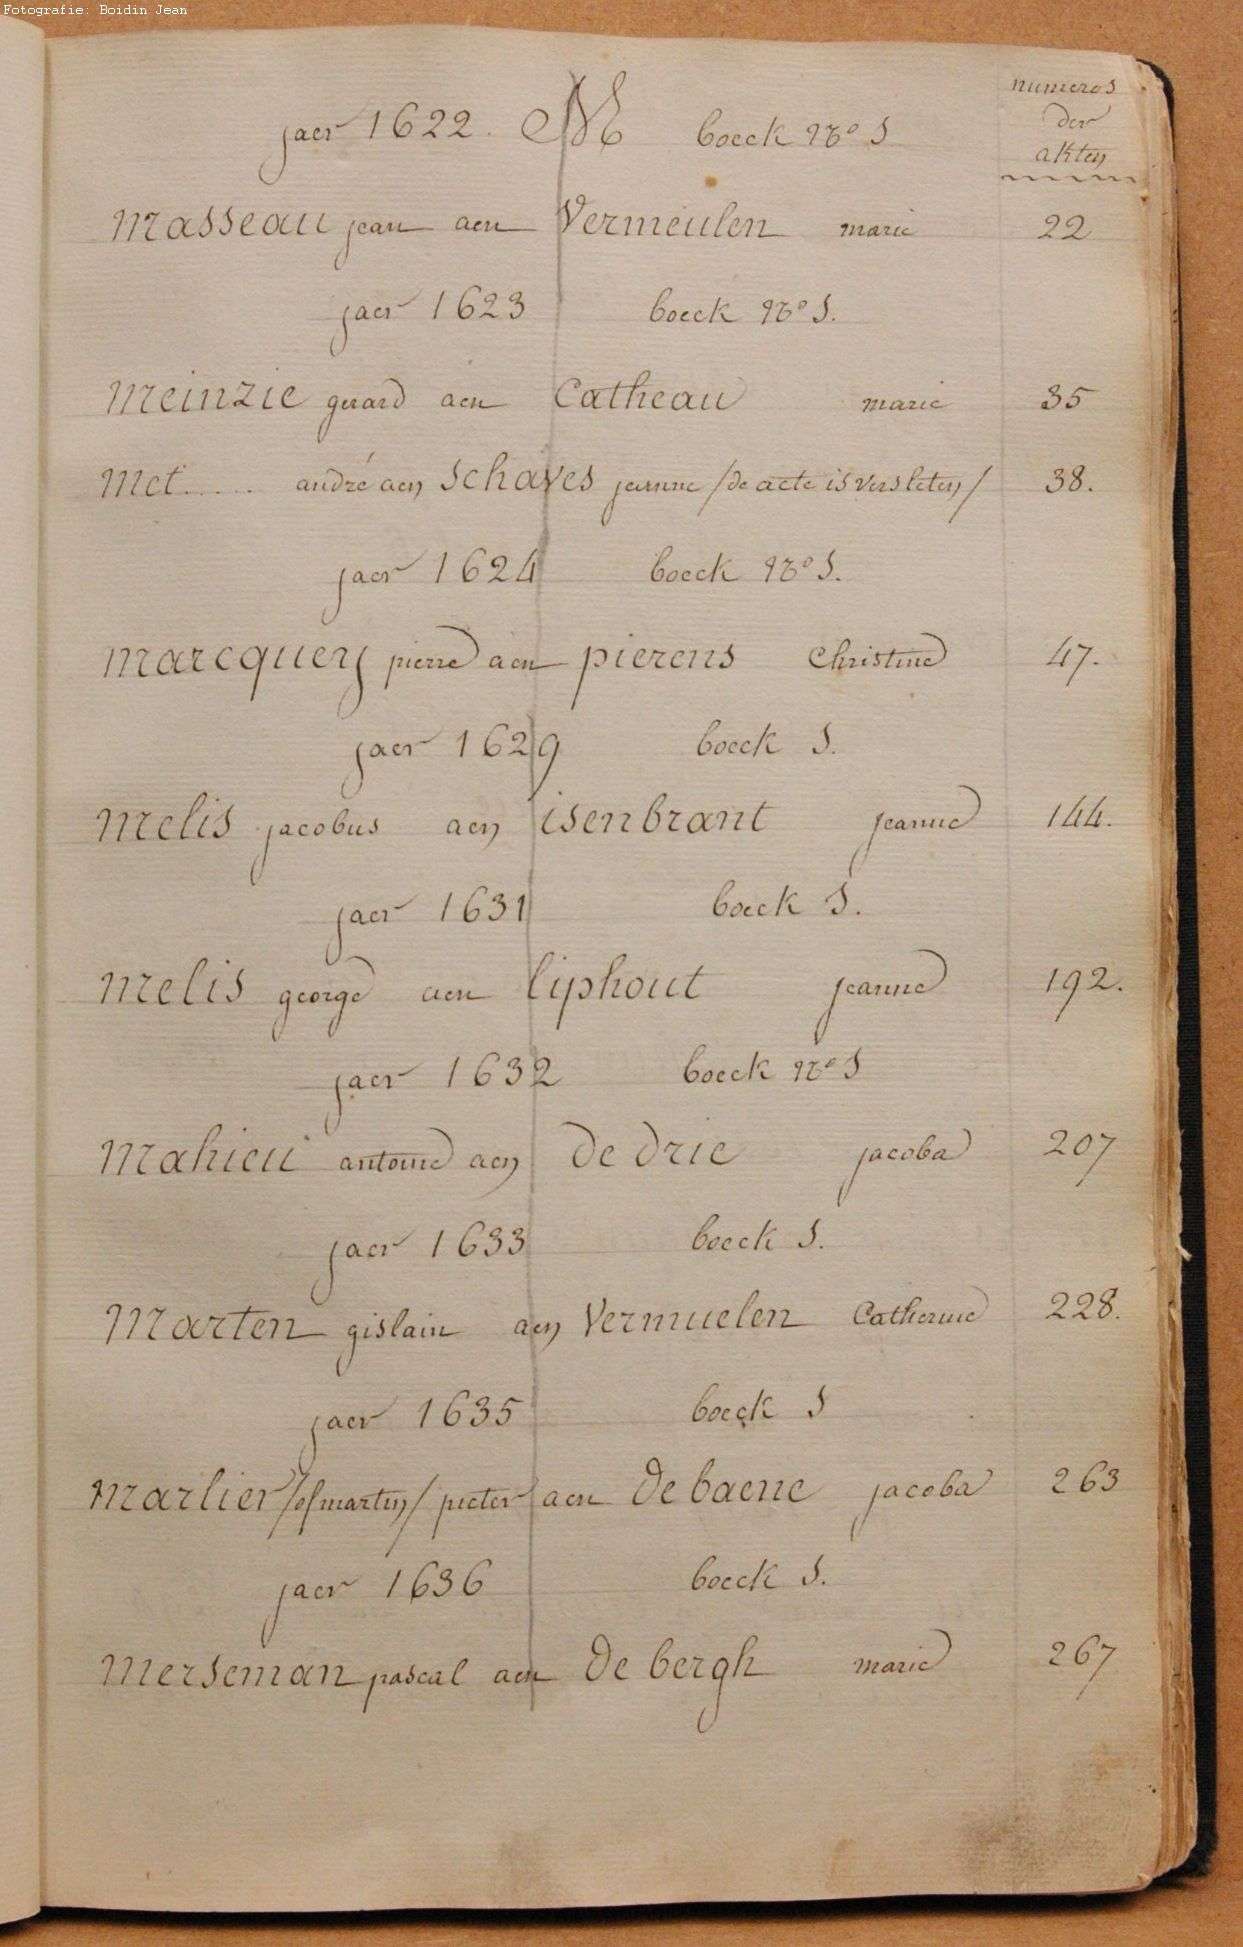 Fotografie: Boidin Jean
numeros
der
akten
jaer 1622. M boeck N° 1
Masseau jean aen Vermeulen marie 22
jaer 1623 boeck N° 1.
Meinzie gerard aen Catheau marie 35
Met..... andré aen Schaves jeanne /de acte is versleten/ 38.
jaer 1624 boeck N° 1.
Marcquey pierre aen pierens Christine 47.
jaer 1629 boeck 1.
Melis jacobus aen isenbrant jeanne 144.
jaer 1631 boeck 1.
Melis george aen liphout jeanne 192.
jaer 1632 boeck N° 1
Mahieu antoine aen de drie jacoba 207
jaer 1633 boeck 1.
Marten gislain aen Vermuelen Catherine 228.
jaer 1635 boeck 1
Marlier /of martin/ pieter aen de baene jacoba 263
jaer 1636 boeck 1.
Merseman pascal aen de bergh marie 267